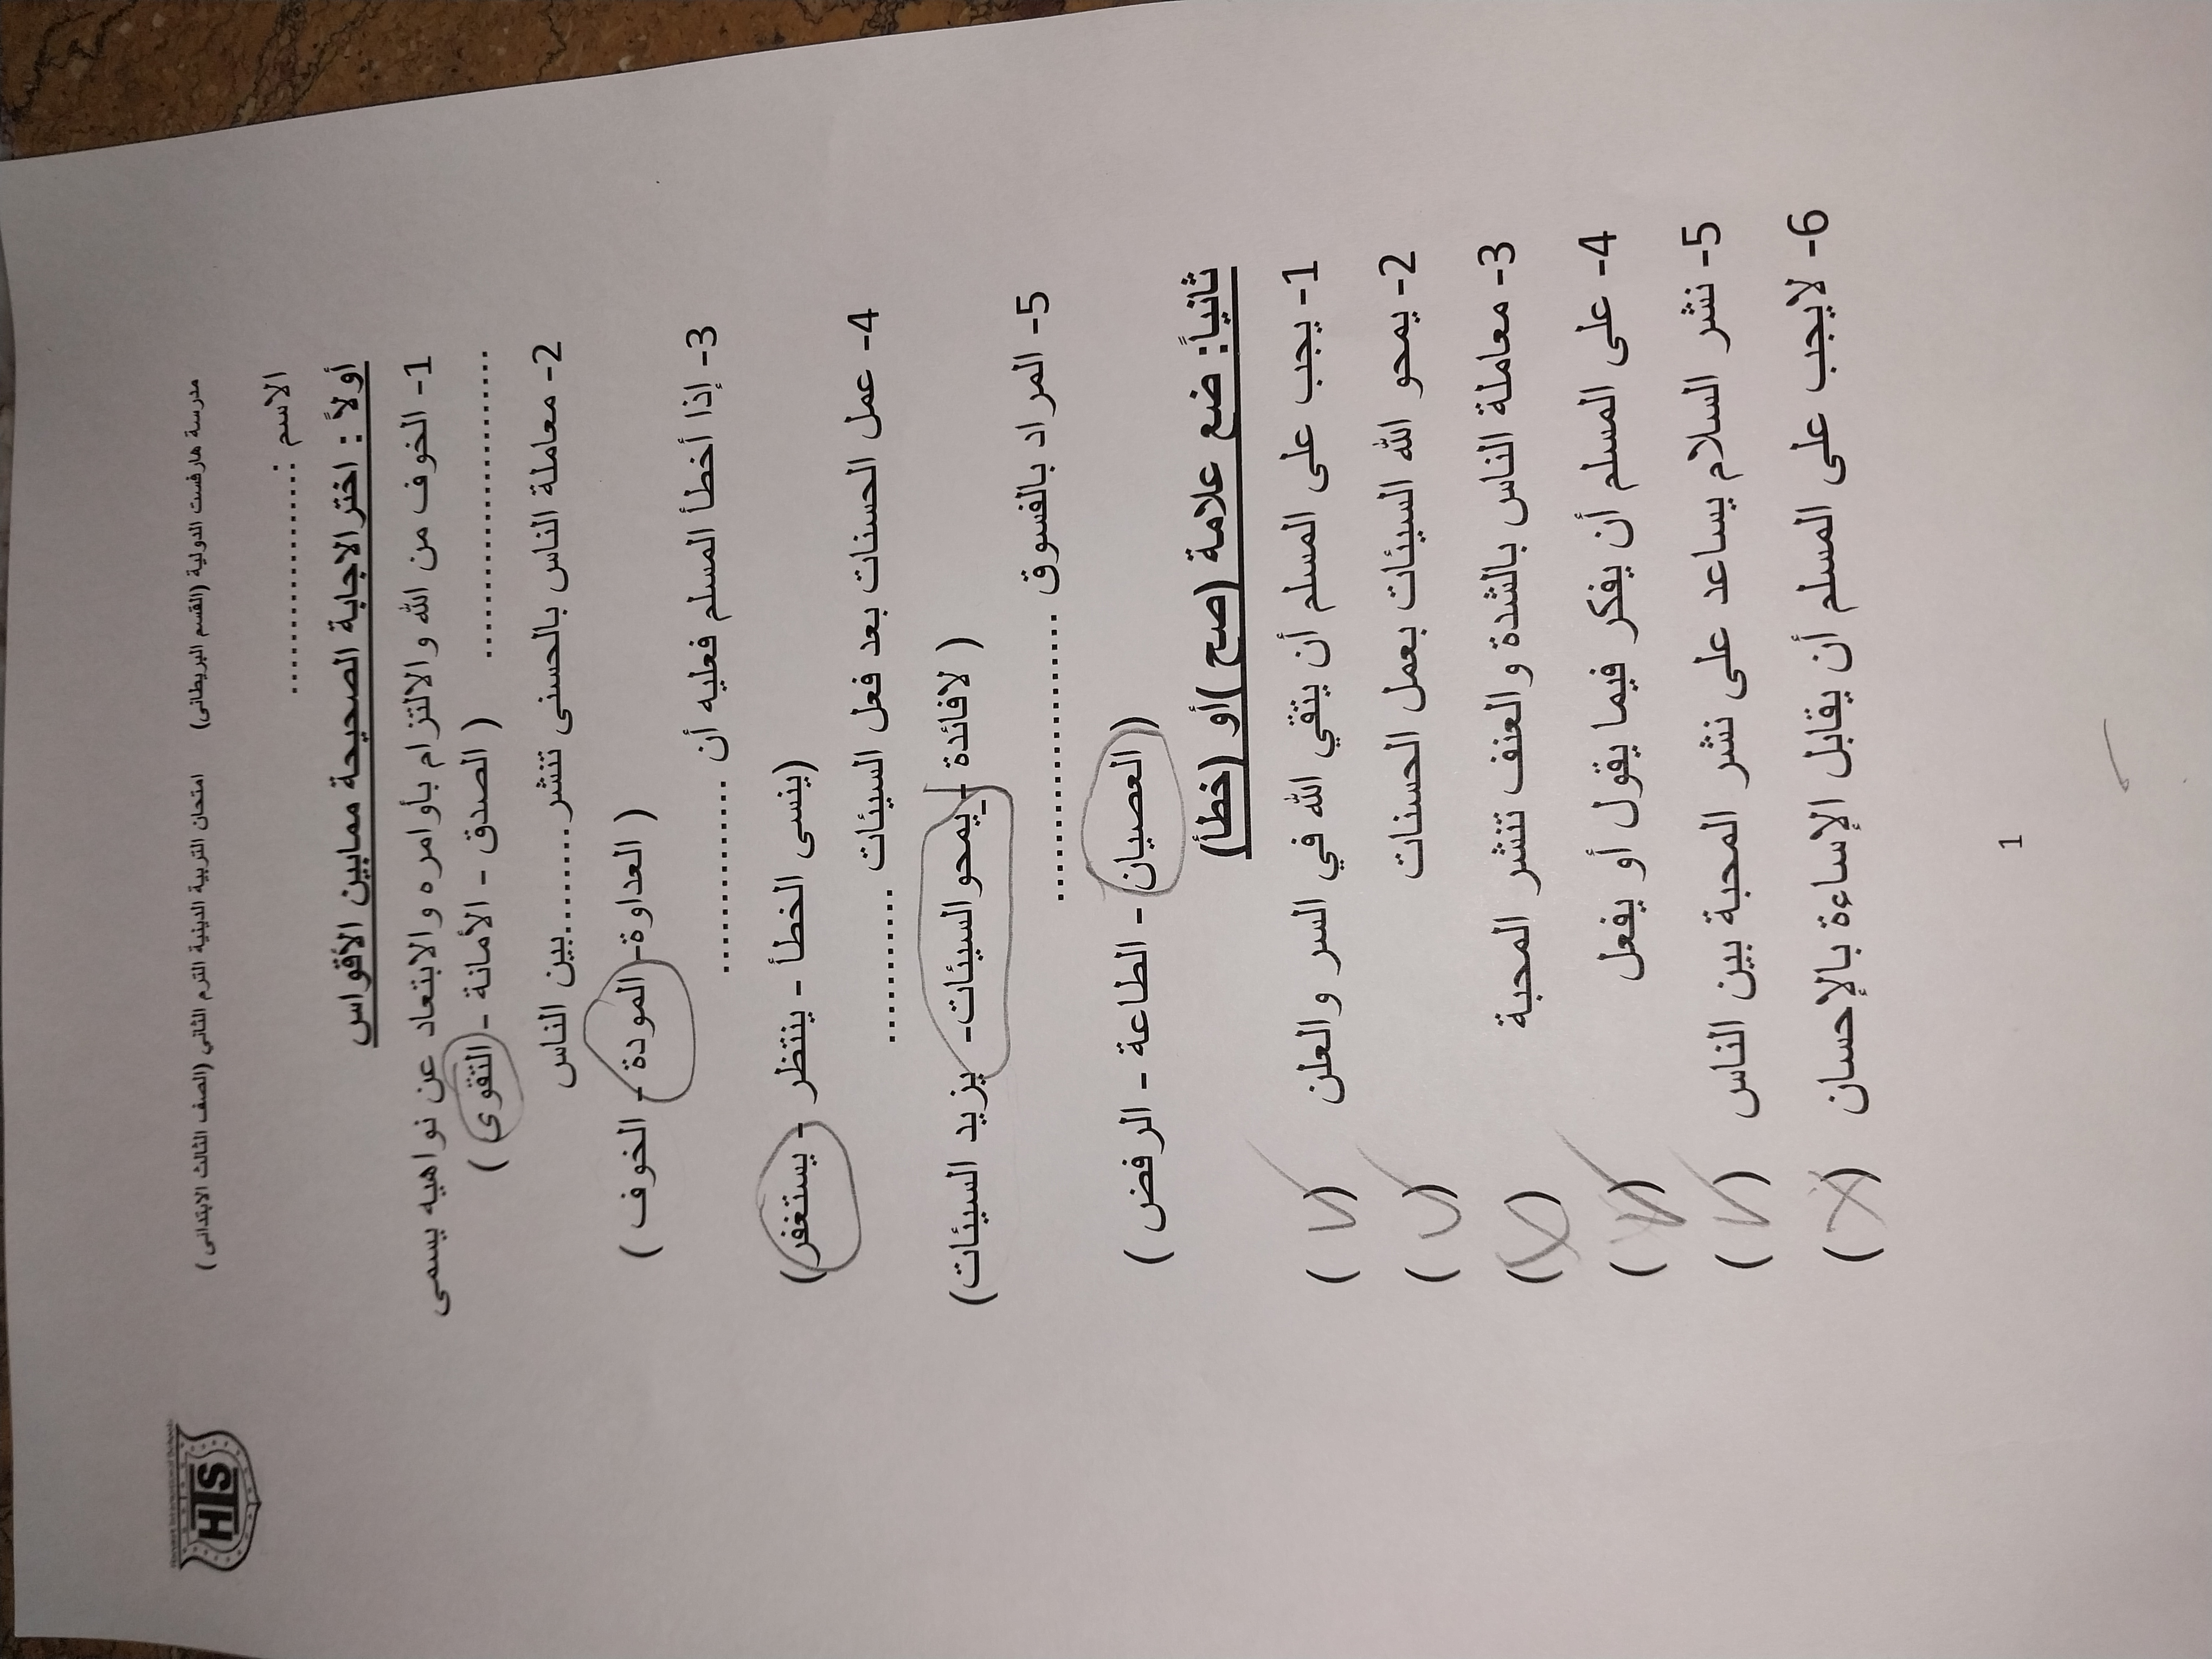 HIS
مدرسة هارفست الدولية (القسم البريطانى) امتحان التربية الدينية الترم الثاني (الصف الثالث الابتدائى )
الاسم :....................
أولاً : اختر الاجابة الصحيحة ممابين الأقواس
1- الخوف من الله والالتزام بأوامره والابتعاد عن نواهيه يسمى
............................ ( الصدق - الأمانة - التقوى )
2- معاملة الناس بالحسنى تنتشر..........بين الناس
( العداوة - المودة - الخوف )
3- إذا أخطأ المسلم فعليه أن ..................
(ينسى الخطأ - ينتظر - يستغفر)
4- عمل الحسنات بعد فعل السيئات ..............
( لافائدة - يمحو السيئات - يزيد السيئات)
5- المراد بالفسوق ..........................
(العصيان - الطاعة - الرفض )
ثانياً: ضع علامة (صح )أو (خطأ)
1- يجب على المسلم أن يتقي الله في السر والعلن ( ✓ )
2- يمحو الله السيئات بعمل الحسنات ( ✓ )
3- معاملة الناس بالشدة والعنف تنشر المحبة ( X )
4- على المسلم أن يفكر فيما يقول أو يفعل ( ✓ )
5- نشر السلام يساعد على نشر المحبة بين الناس ( ✓ )
6- لايجب على المسلم أن يقابل الإساءة بالإحسان ( X )
1